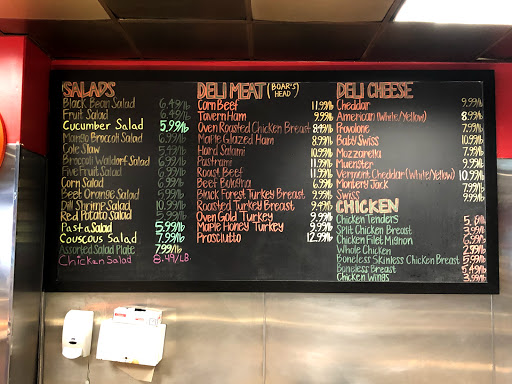 SALADS
Black Bean Salad 6.49/lb
Fruit Salad 6.49/lb
Cucumber Salad 5.99/lb
Mango Broccoli Salad
Cole Slaw
Broccoli Waldorf Salad
Five Fruit Salad
Corn Salad
Beet Orange Salad
Dill Shrimp Salad 10.99/lb
Red Potato Salad
Pasta Salad 5.99/lb
Couscous Salad 7.99/lb
Assorted Salad Plate 7.99/lb
Chicken Salad 8.49/LB.
DELI MEAT (BOAR'S HEAD)
Corn Beef 11.99/lb
Tavern Ham 9.99/lb
Oven Roasted Chicken Breast
Maple Glazed Ham 8.99/lb
Hard Salami 10.99/lb
Pastrami 11.99/lb
Roast Beef 11.99/lb
Beef Bologna 6.99/lb
Black Forest Turkey Breast 9.99/lb
Roasted Turkey Breast
Oven Gold Turkey 9.99/lb
Maple Honey Turkey 9.99/lb
Prosciutto 12.99/lb
DELI CHEESE
Cheddar 9.99/lb
American (White/Yellow) 8.99/lb
Provolone
Baby Swiss 10.99/lb
Mozzarella
Muenster 9.99/lb
Vermont Cheddar (White/Yellow) 10.99/lb
Monterey Jack
Swiss 9.99/lb
CHICKEN
Chicken Tenders
Split Chicken Breast 3.99/lb
Chicken Filet Mignon 6.99/lb
Whole Chicken 2.99/lb
Boneless Skinless Chicken Breast 5.99/lb
Boneless Breast 5.49/lb
Chicken Wings 3.99/lb